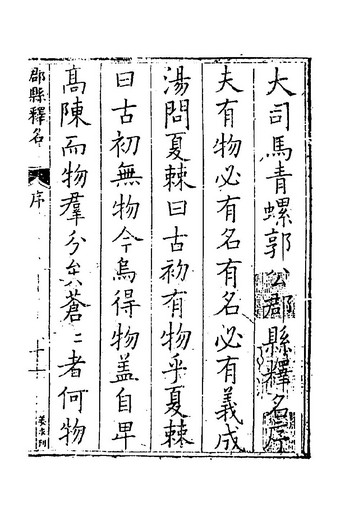 大司馬青螺郭公郡縣釋名序
夫有物必有名有名必有義成
湯問夏棘曰古初有物乎夏棘
曰古初無物今烏得物盖自卑
高陳而物羣分矣蒼〻者何物
郡縣釋名
序